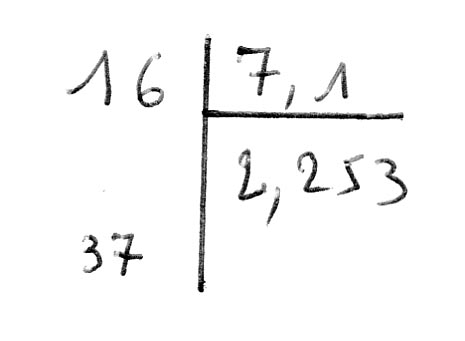 16 7,1
2,253
37